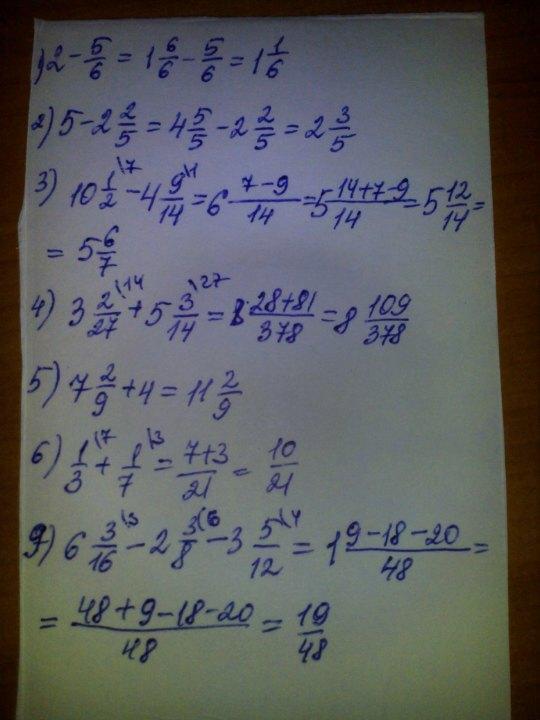 1) 2 - 5/6 = 1 6/6 - 5/6 = 1 1/6
2) 5 - 2 2/5 = 4 5/5 - 2 2/5 = 2 3/5
3) 10 1/2 \7 - 4 9/14 \1 = 6 (7-9)/14 = 5 (14+7-9)/14 = 5 12/14 =
= 5 6/7
4) 3 2/27 \14 + 5 3/14 \27 = 8 (28+81)/378 = 8 109/378
5) 7 2/9 + 4 = 11 2/9
6) 1/3 \7 + 1/7 \3 = (7+3)/21 = 10/21
9) 6 3/16 \3 - 2 3/8 \6 - 3 5/12 \4 = 1 (9-18-20)/48 =
= (48+9-18-20)/48 = 19/48